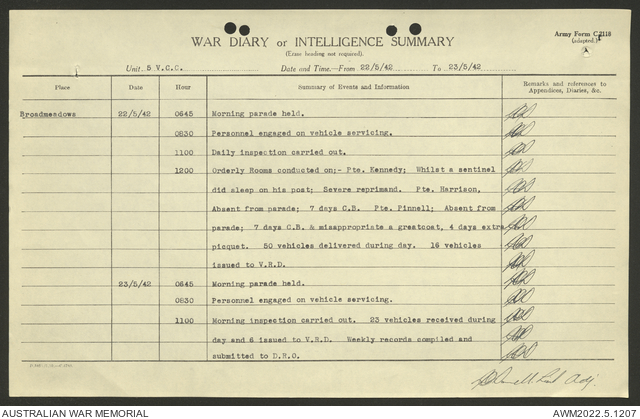 WAR DIARY or INTELLIGENCE SUMMARY
Army Form C.2118
(adapted.)
(Erase heading not required).
A
Unit 5 V.C.C. Date and Time.—From 22/5/42 To 23/5/42
Place Date Hour Summary of Events and Information Remarks and references to
Appendices, Diaries, &c.
Broadmeadows 22/5/42 0645 Morning parade held.
0830 Personnel engaged on vehicle servicing.
1100 Daily inspection carried out.
1200 Orderly Rooms conducted on;- Pte. Kennedy; Whilst a sentinel
did sleep on his post; Severe reprimand. Pte. Harrison,
Absent from parade; 7 days C.B. Pte. Pinnell; Absent from
parade; 7 days C.B. & misappropriate a greatcoat, 4 days extra
picquet. 50 vehicles delivered during day. 16 vehicles
issued to V.R.D.
23/5/42 0645 Morning parade held.
0830 Personnel engaged on vehicle servicing.
1100 Morning inspection carried out. 23 vehicles received during
day and 6 issued to V.R.D. Weekly records compiled and
submitted to D.R.O.
Adj.
AUSTRALIAN WAR MEMORIAL AWM2022.5.1207